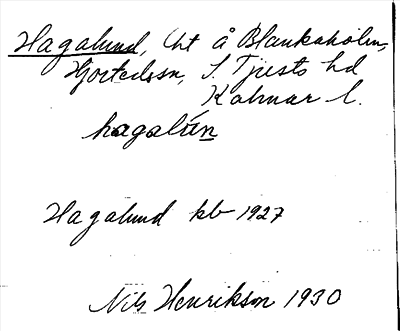 Hagalund, lht å Blankaholm,
Hjorteds sn, S. Tjusts hd
Kalmar l.
hagalún
Hagalund kb 1927
Nils Henrikson 1930